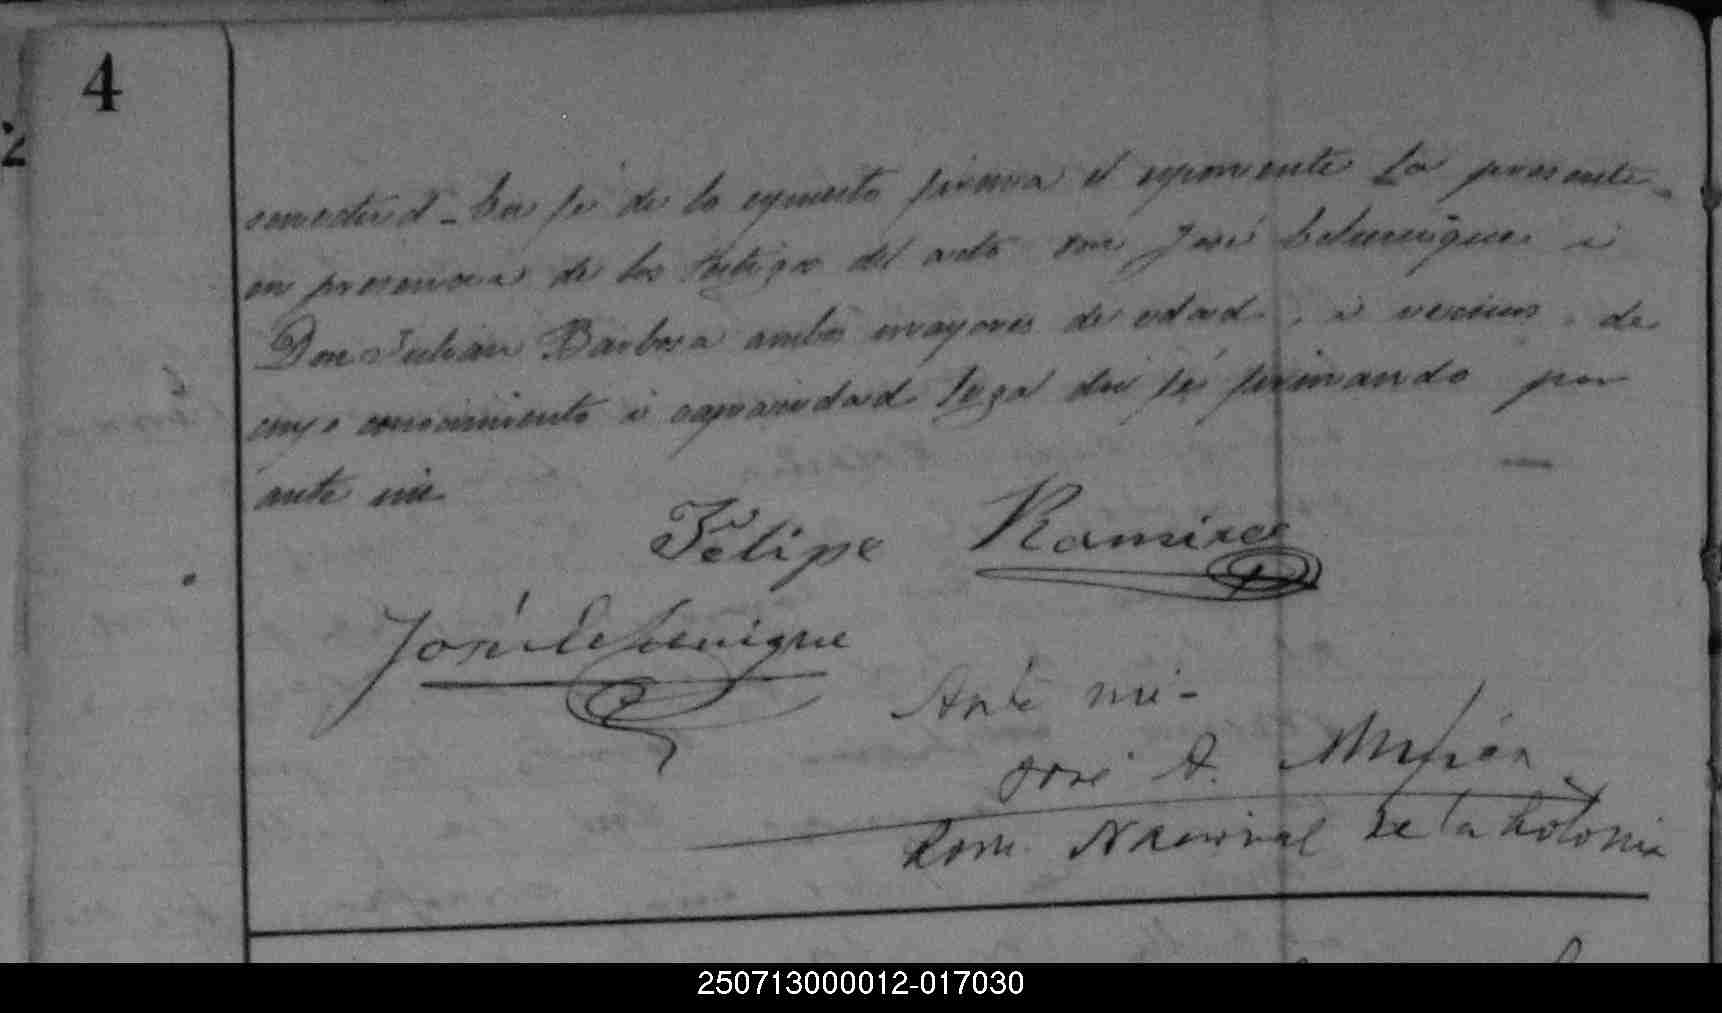 4
2
En fe de lo espuesto firma el esponente la presente
en presencia de los testigos del acto Don José i
Don Julian Barbosa ambos mayores de edad, i vecinos, de
cuyo conocimiento i capacidad legal doi fé firmando por
ante mi
Felipe Ramirez
José
Ante mi-
José A.
Com. Nacional de la Colonia
250713000012-017030